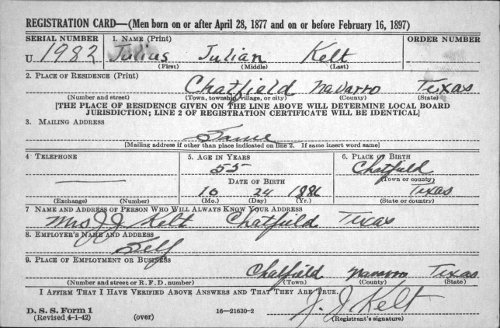 REGISTRATION CARD—(Men born on or after April 28, 1877 and on or before February 16, 1897)
SERIAL NUMBER 1. NAME (Print) ORDER NUMBER
U 1982 Julius Julian Kelt
(First) (Middle) (Last)
2. PLACE OF RESIDENCE (Print)
Chatfield Navarro Texas
(Number and street) (Town, township, village, or city) (County) (State)
[THE PLACE OF RESIDENCE GIVEN ON THE LINE ABOVE WILL DETERMINE LOCAL BOARD
JURISDICTION; LINE 2 OF REGISTRATION CERTIFICATE WILL BE IDENTICAL]
3. MAILING ADDRESS
Same
[Mailing address if other than place indicated on line 2. If same insert word same]
4. TELEPHONE 5. AGE IN YEARS 6. PLACE OF BIRTH
55 Chatfield
DATE OF BIRTH (Town or county)
10 24 1886 Texas
(Exchange) (Number) (Mo.) (Day) (Yr.) (State or country)
7. NAME AND ADDRESS OF PERSON WHO WILL ALWAYS KNOW YOUR ADDRESS
Mrs J. J. Kelt Chatfield Texas
8. EMPLOYER'S NAME AND ADDRESS
Self
9. PLACE OF EMPLOYMENT OR BUSINESS
Chatfield Navarro Texas
(Number and street or R. F. D. number) (Town) (County) (State)
I AFFIRM THAT I HAVE VERIFIED ABOVE ANSWERS AND THAT THEY ARE TRUE.
J. J. Kelt
D. S. S. Form 1 16—21630-2 (Registrant's signature)
(Revised 4-1-42) (over)